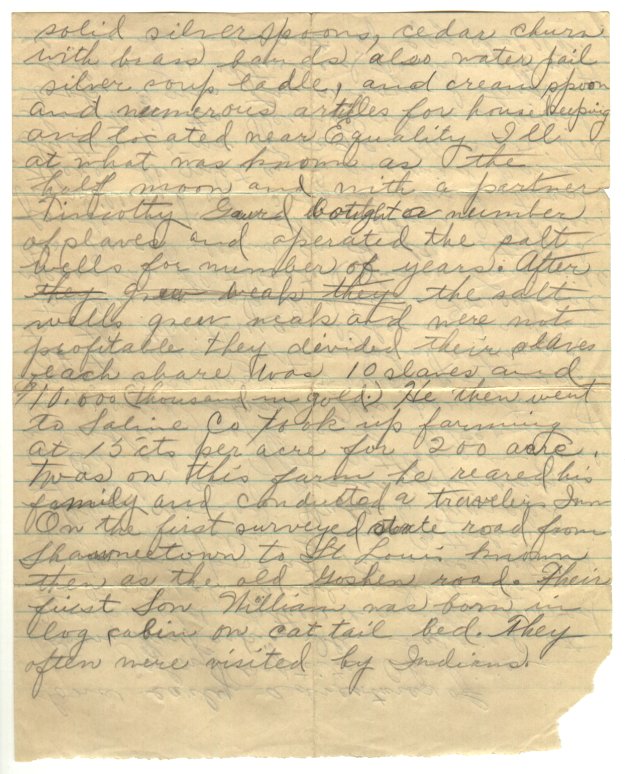 solid silver spoons, cedar churn
with brass bands also water pail
silver soup ladle, and cream spoon
and numerous articles for housekeeping
and located near Equality Ill
at what was known as the
half moon and with a partner
Timothy Guard bought a number
of slaves and operated the salt
wells for number of years. After
they grew weak they the salt
wells grew weak and were not
profitable they divided their slaves
each share was 10 slaves and
$10.000 (thousand in gold.) He then went
to Saline Co took up farming
at 15 cts per acre for 200 acre.
Twas on this farm he reared his
family and conducted a travelers Inn
On the first surveyed state road from
Shawneetown to St. Louis known
then as the old Goshen road. Their
first Son William was born in
log cabin on cat tail bed. They
often were visited by Indians.